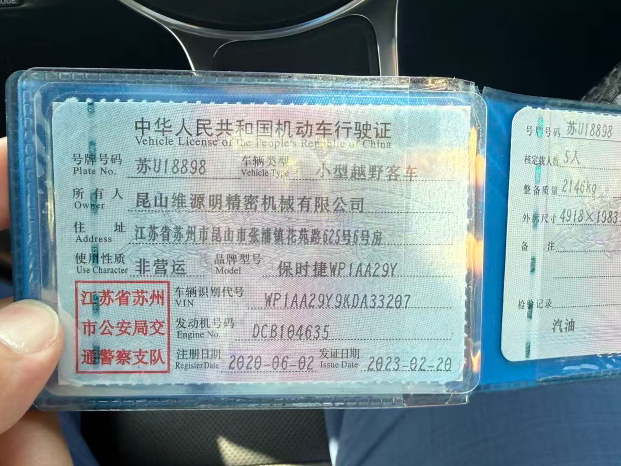 中华人民共和国机动车行驶证
Vehicle License of the People's Republic of China
号牌号码 苏U18898 车辆类型 小型越野客车
Plate No. Vehicle Type
所有人 昆山维源明精密机械有限公司
Owner
住址 江苏省苏州市昆山市张浦镇花苑路625号6号房
Address
使用性质 非营运 品牌型号 保时捷WP1AA29Y
Use Character Model
江苏省苏州
市公安局交
通警察支队
车辆识别代号 WP1AA29Y9KDA33207
VIN
发动机号码 DCB104635
Engine No.
注册日期 2020-06-02 发证日期 2023-02-20
Register Date Issue Date
号牌号码 苏U18898
核定载人数 5人
整备质量 2146kg
外廓尺寸 4918×1983
备注
检验记录
汽油